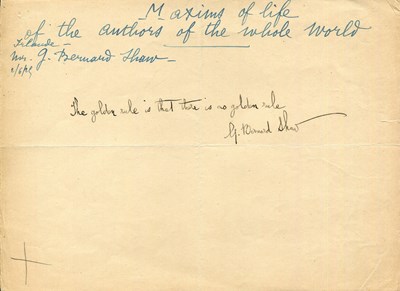 Maxims of life
of the authors of the whole World
Irlande -
Mr. G. Bernard Shaw -
The golden rule is that there is no golden rule
G. Bernard Shaw